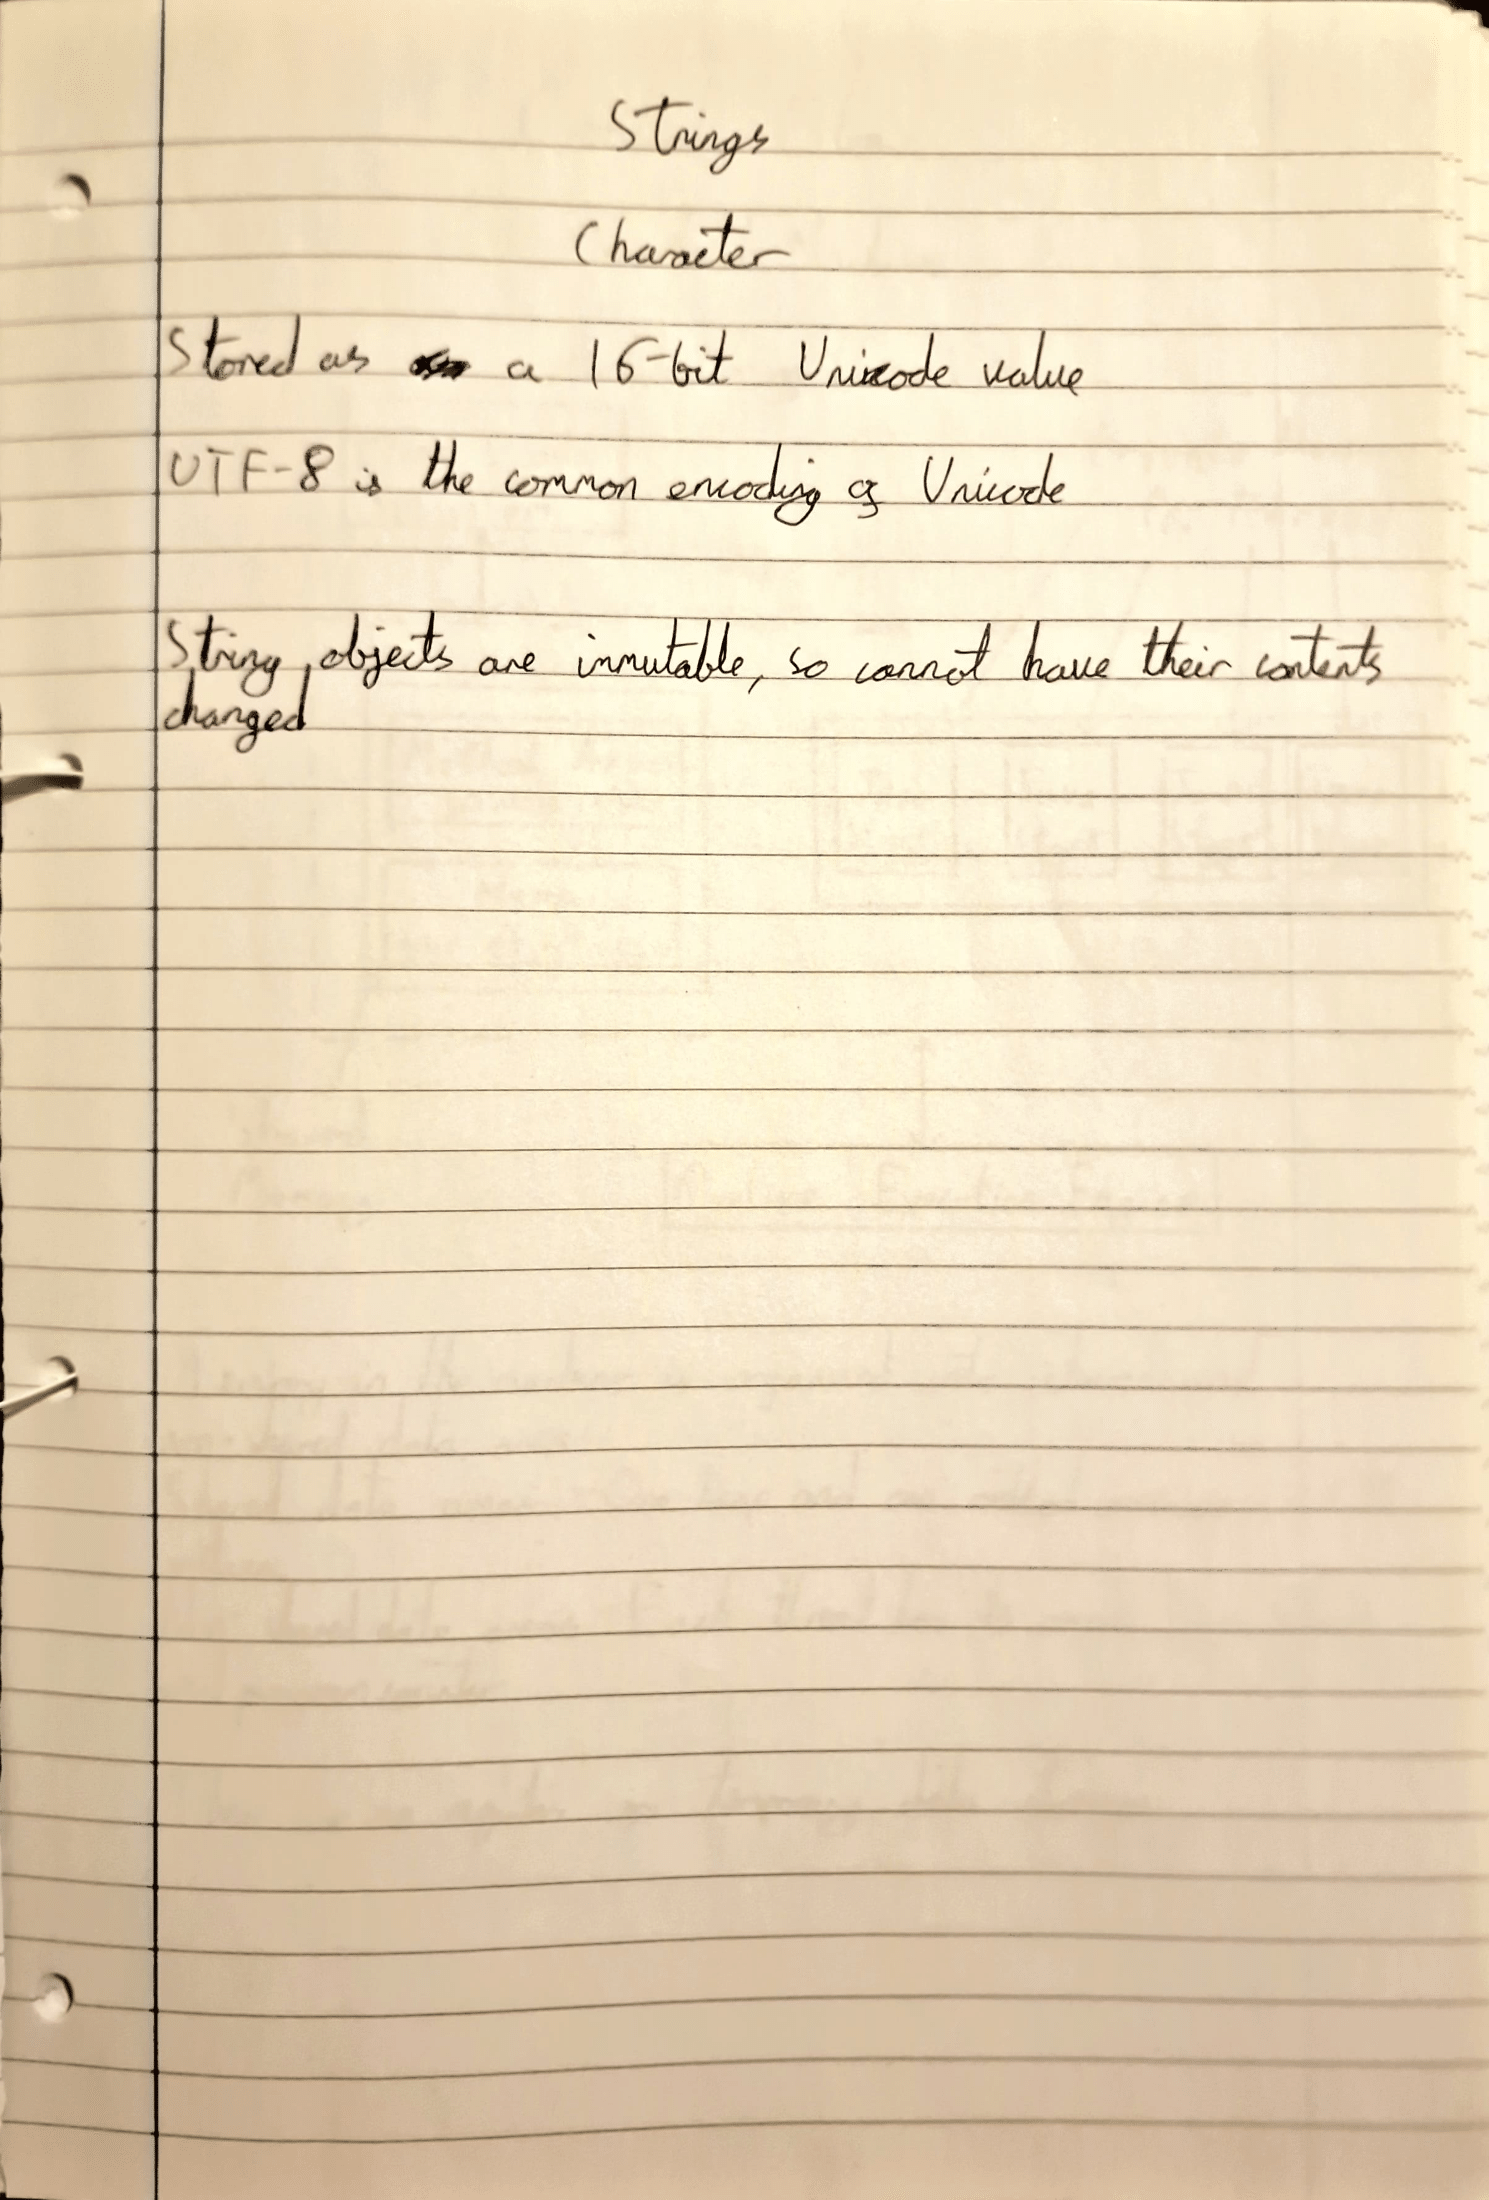 Strings
Character
Stored as a 16-bit Unicode value
UTF-8 is the common encoding of Unicode
String objects are immutable, so cannot have their contents
changed